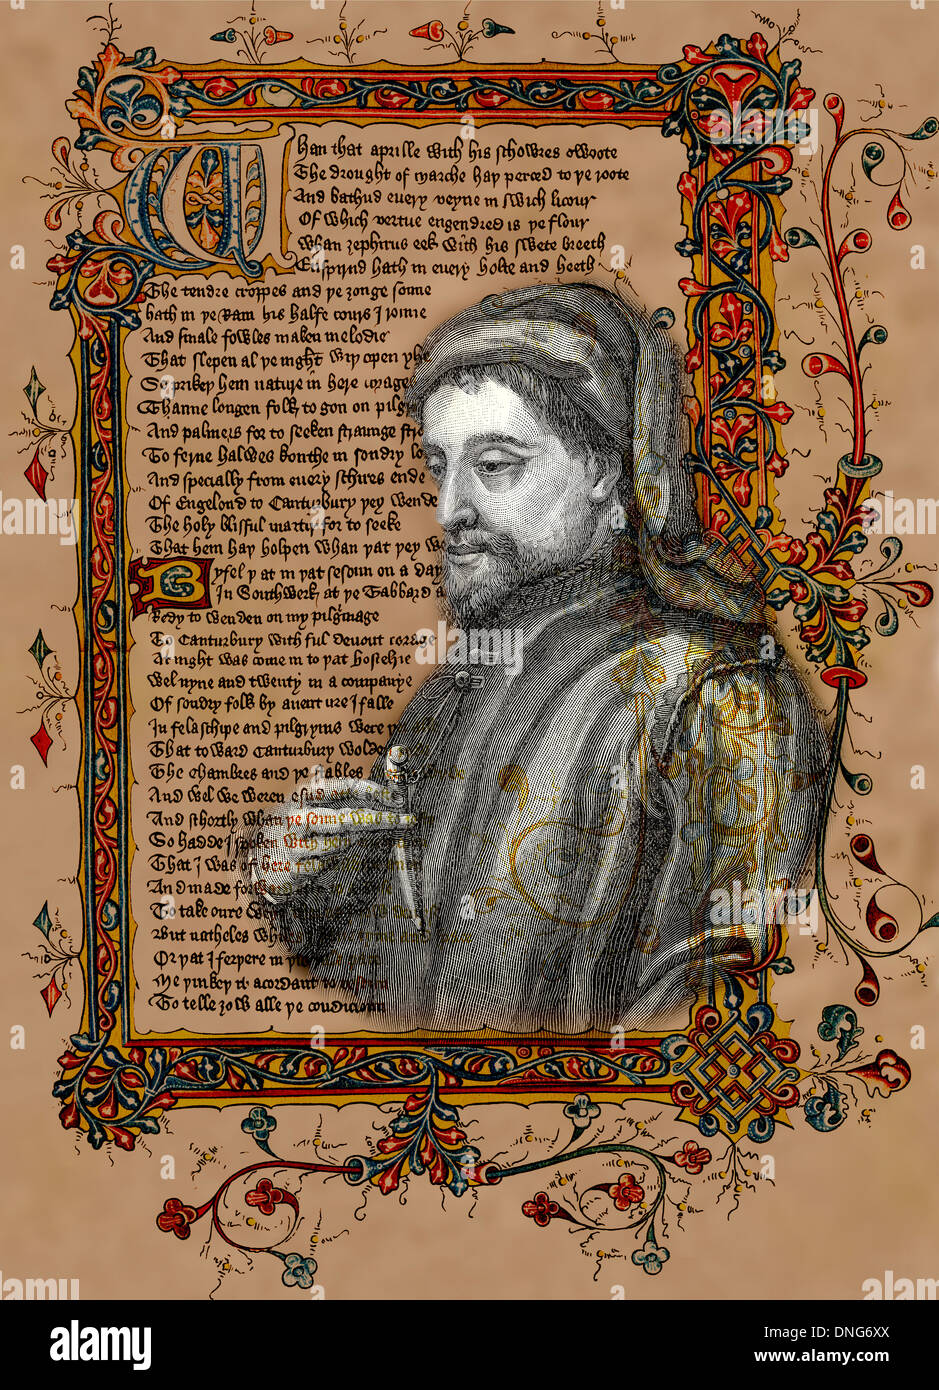 Whan that aprille with his schowres swoote
The drought of marche hay perced to ye roote
And bathud every veyne in swich licour
Of which vertue engendred is ye flour
Whan zephirus eek with his swete breeth
Enspyrud hath in every holte and heeth
The tendre croppes and ye zonge sonne
hath in ye Ram his halfe cours I ronne
And smale fowles maken melodie
That slepen al ye night wiy open yhe
So prikey hem nature in here corage
Thanne longen folk to gon on pilgr
And palmers for to seeken straunge str
To ferne halwes konthe in sondry lo
And specially from every schires ende
Of Engelond to Canturbury yey wende
The holy blisful martyr for to seeke
That hem hay holpen whan yat yey we
Byfel y at in yat sesoun on a day
In Southwerk at ye Tabbard a
Redy to wenden on my pilgrimage
To Canturbury with ful devout corage
At night was come in to yat hostelrie
Wel nyne and twenty in a companye
Of soudry folk by auenture I falle
In felaschipe and pilgryms were y alle
That to ward Canturbury wolden
The chambres and ye stables
And wel we weren esud
And schortly whan ye sonne was to
So hadde I spoken with hem
That I was of here fel
And made forward
To take oure weye
But natheles whi
Or yat I ferpere in
Me yinkey it acordant to resoun
To telle zow alle ye condicioun
alamy
Image ID: DNG6XX
www.alamy.com